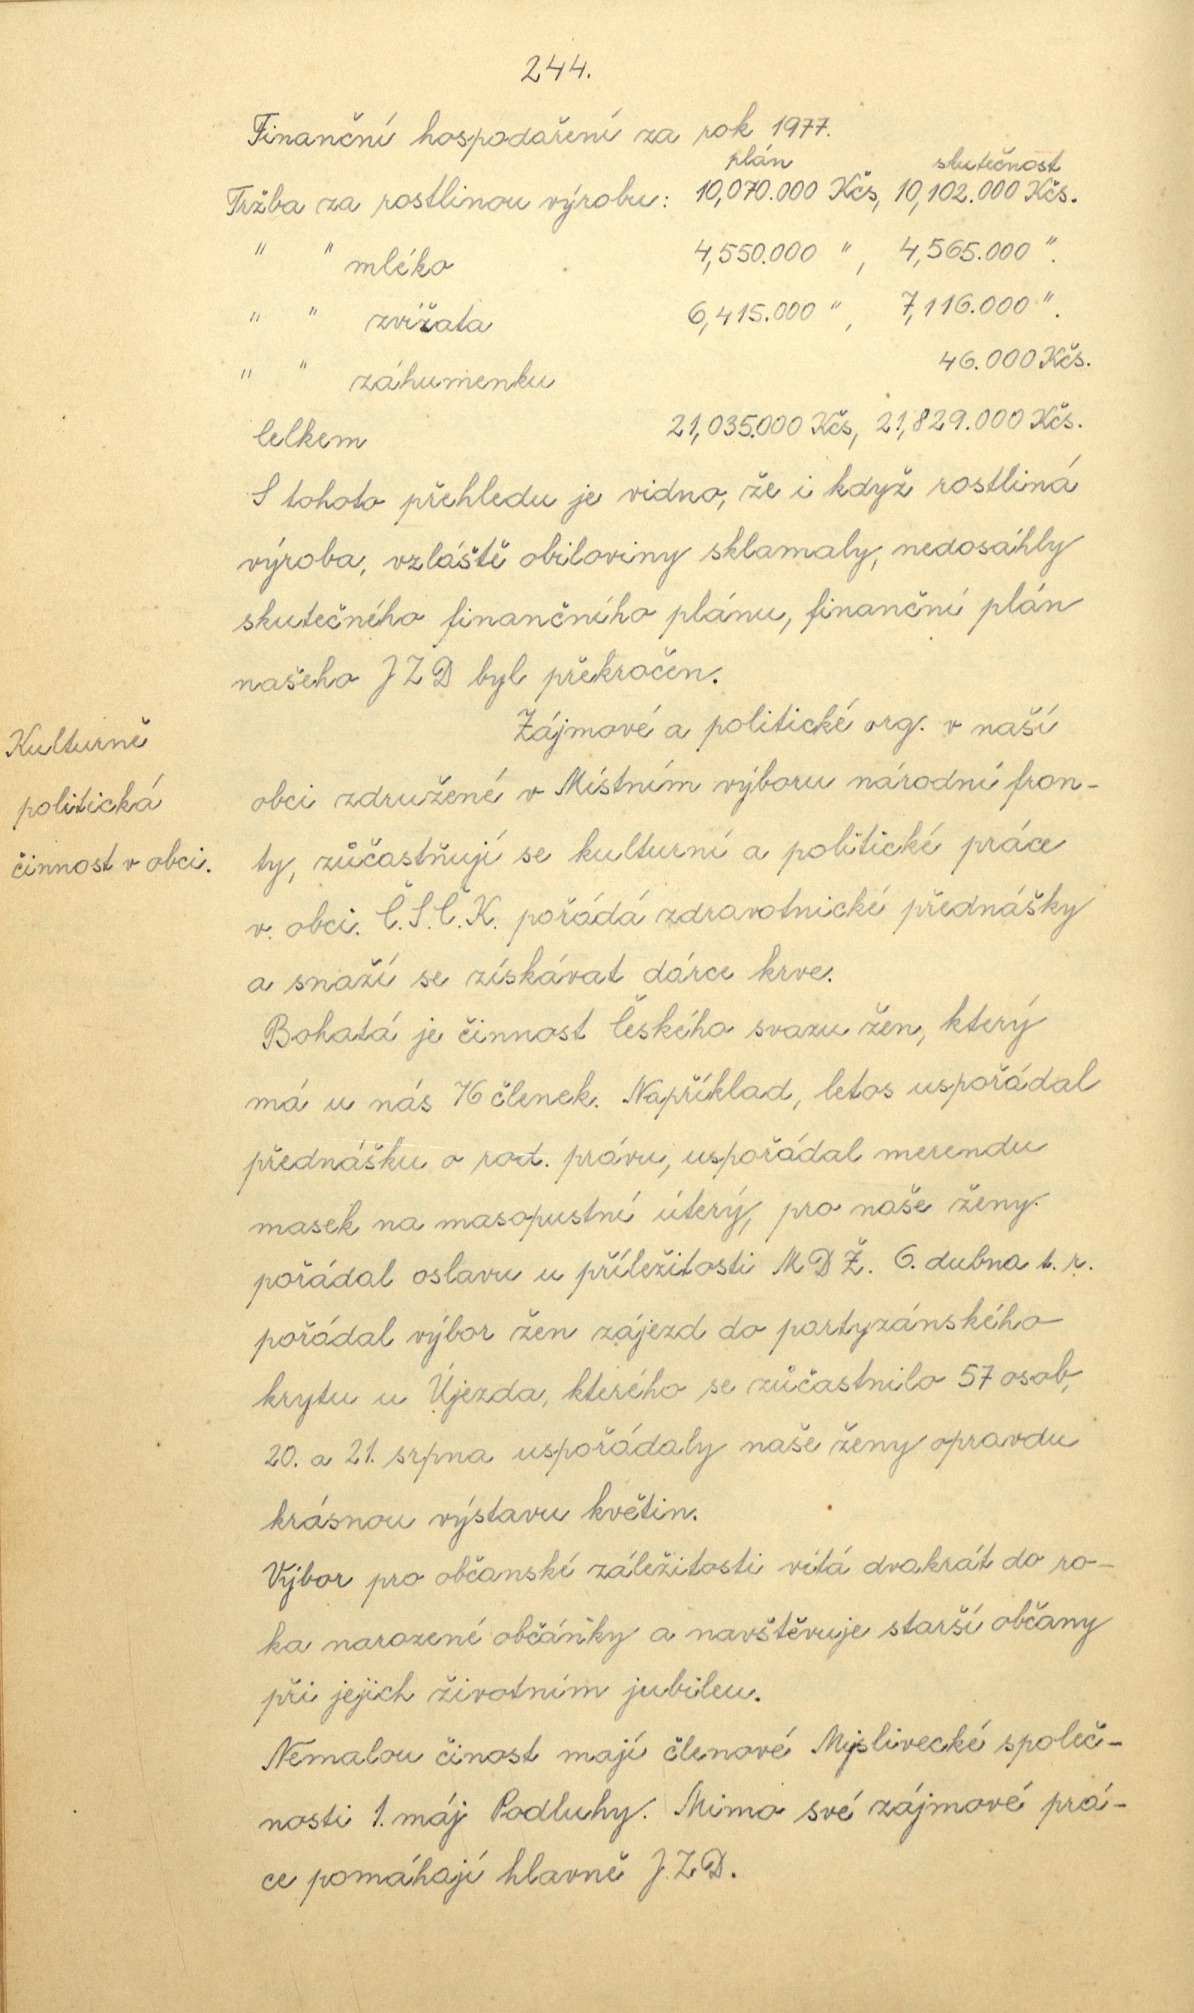 244.
Finanční hospodaření za rok 1977.
plán skutečnost
Tržba za rostlinou výrobu: 10,070.000 Kčs, 10,102.000 Kčs.
" " mléko 4,550.000 ", 4,565.000 ".
" " zvížata 6,415.000 ", 7,116.000 ".
" " záhumenku 46.000 Kčs.
Celkem 21,035.000 Kčs, 21,829.000 Kčs.
S tohoto přehledu je vidno, že i když rostliná
výroba, vzláště obiloviny sklamaly, nedosáhly
skutečného finančního plánu, finanční plán
našeho J Z D byl překročen.
Kulturně
politická
činnost v obci.
Zájmové a politické org. v naší
obci združené v Místním výboru národní fron-
ty, zůčastňují se kulturní a politické práce
v obci. Č.S.Č.K. pořádá zdravotnické přednášky
a snaží se získávat dárce krve.
Bohatá je činnost Českého svazu žen, který
má u nás 76 členek. Například, letos uspořádal
přednášku o rod. právu, uspořádal merendu
masek na masopustní úterý, pro naše ženy
pořádal oslavu u příležitosti M D Ž. 6. dubna t. r.
pořádal výbor žen zájezd do partyzánského
krytu u Újezda, kterého se zůčastnilo 57 osob,
20. a 21. srpna uspořádaly naše ženy opravdu
krásnou výstavu květin.
Výbor pro občanské záležitosti vítá dvakrát do ro-
ka narozené občánky a navštěvuje starší občany
při jejich životním jubileu.
Nemalou činost mají členové Myslivecké společ-
nosti 1. máj Podluhy. Mimo své zájmové prá-
ce pomáhají hlavně J.Z.D.